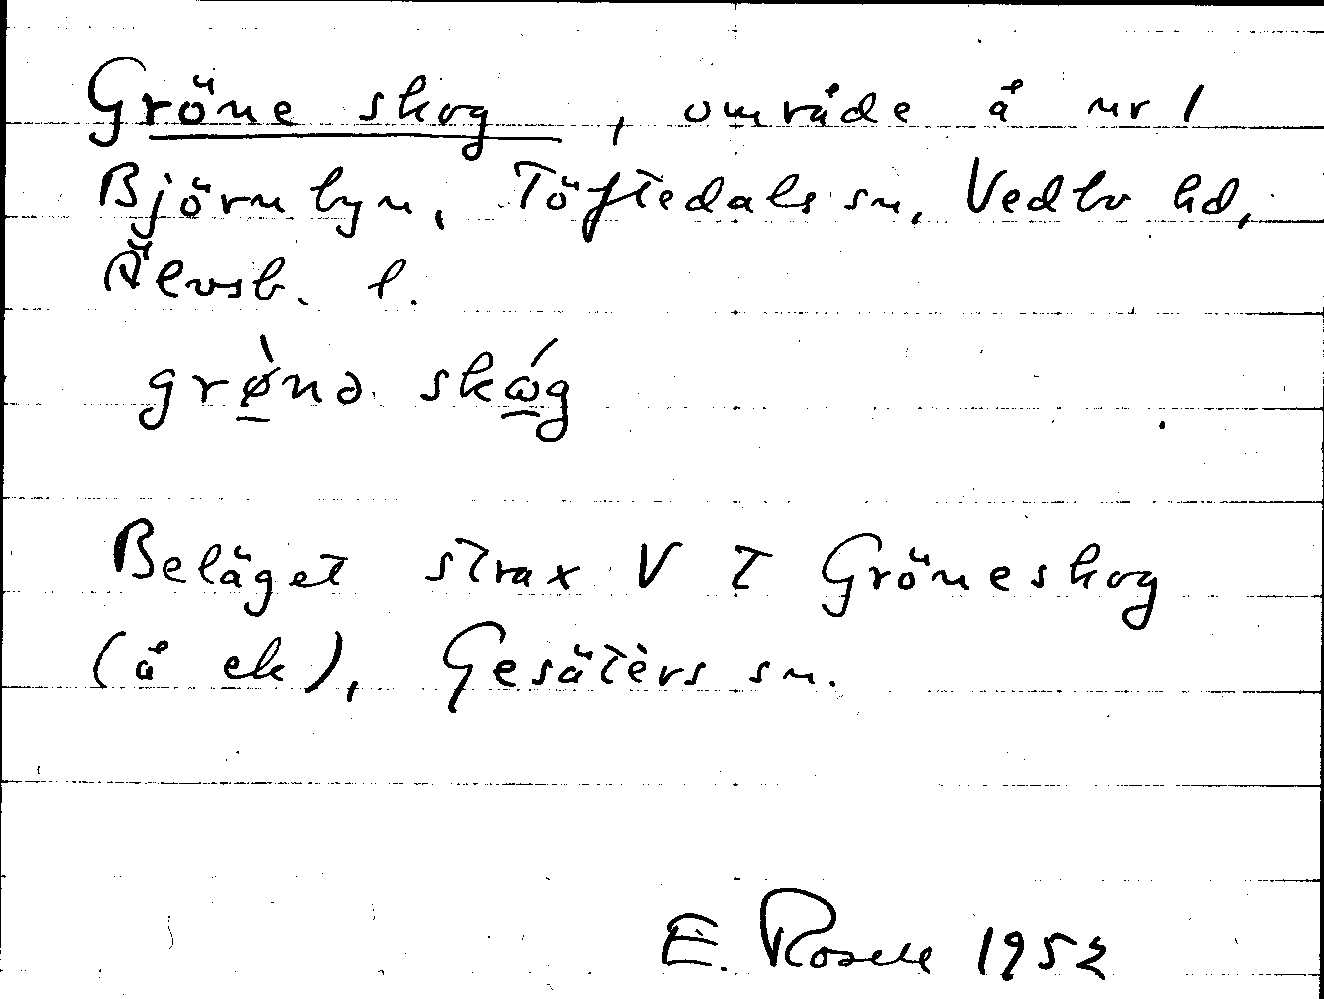 Gröne skog, område å nr 1
Björnbyn, Töftedals sn, Vedbo hd,
Älvsb. l.
grø̀nə skǿg
Beläget strax V t Gröneskog
(å ek), Gesäters sn.
E. Rosell 1952